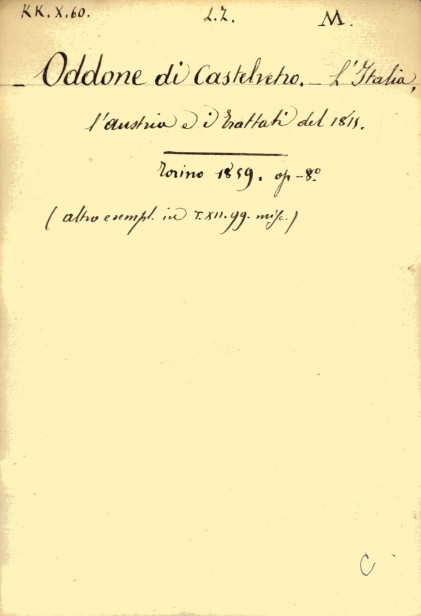 KK. X. 60. L. Z. M.
– Oddone di Castelvetro. – L'Italia,
l'austria e i Trattati del 1815.
Torino 1859. op – 8º
(altro esempl. in T. XII. 99. misc.)
C